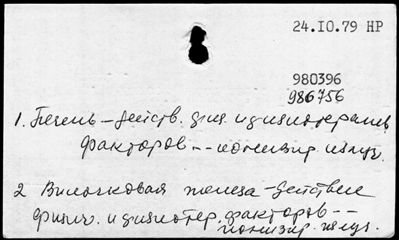 24.10.79 НР
980396
986756
1. Печень – действ. физ и физиотерапев
факторов -- ионизир. излуч.
2 Вилочковая железа – действие
физич. и физиотер. факторов --
ионизир. излуч.